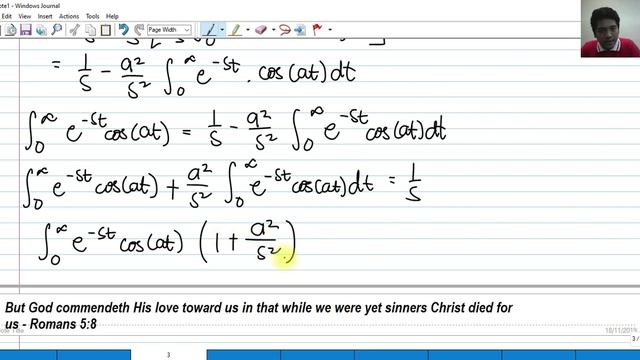 Note1 - Windows Journal
Edit View Insert Actions Tools Help
Page Width
= 1/s - a²/s² ∫₀^∞ e^-st . cos(at)dt
∫₀^∞ e^-st cos(at) = 1/s - a²/s² ∫₀^∞ e^-st cos(at)dt
∫₀^∞ e^-st cos(at) + a²/s² ∫₀^∞ e^-st cos(at)dt = 1/s
∫₀^∞ e^-st cos(at) (1 + a²/s²)
But God commendeth His love toward us in that while we were yet sinners Christ died for
us - Romans 5:8
Note Title
3